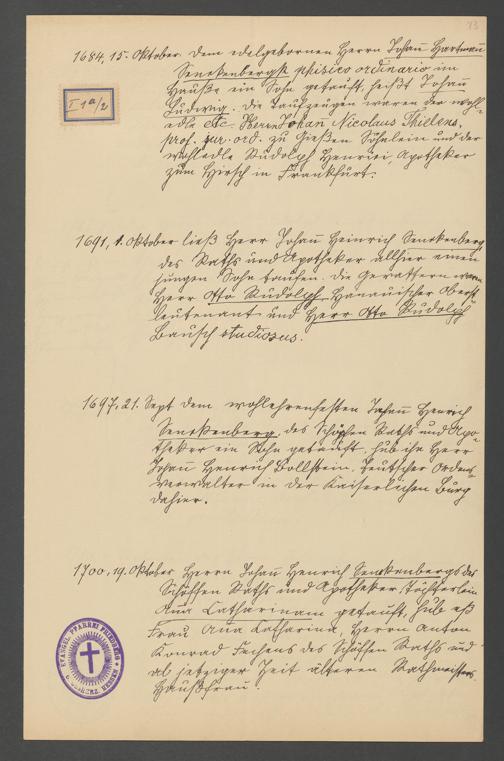 13
1684, 15. Oktober dem edelgebornen Herrn Johan̄ Hartman̄
Senckenbergk phisico ordinario im
Hauße ein Sohn getauft, heißt Johan̄
Ludwig. Die Taufzeugen waren der wohl-
edle etc. Herr Johan Nicolaus Thielens,
prof. jur. ord. zu Gießen Söhnlein und der
wohledle Rudolph Henrici, Apotheker
zum Hirsch in Frankfurt.
I 1a/2
1691, 1. Oktober ließ Herr Johan̄ Heinrich Senckenberg
des Raths und Apotheker allhier einen
jungen Sohn taufen. Die Gevattern waren
Herr Otto Rudolph, Hanauischer Oberst-
leutenant und Herr Otto Rudolph
Bausch studiosus.
1697, 21. Sept dem wohlehrenfesten Johan̄ Henrich
Senckenberg, des Schöpfen Raths und Apo-
theker ein Sohn getauft, hub ihn Herr
Johan̄ Henrich Bollstein, Teutscher Ordens-
verwalter in der Kaiserlichen Burg
dahier.
1700, 19. Oktober Herrn Johan̄ Henrich Senckenbergs des
Schöffen Raths und Apotheker Töchterlein
An̄a Catharinam getauft, hub eß
Frau An̄a Catharina, Herrn Anton
Konrad des Schöffen Raths und
ab jetziger Zeit älteren Rathmeisters
Haußfrau.
EVANGEL. PFARREI FRIEDBERG